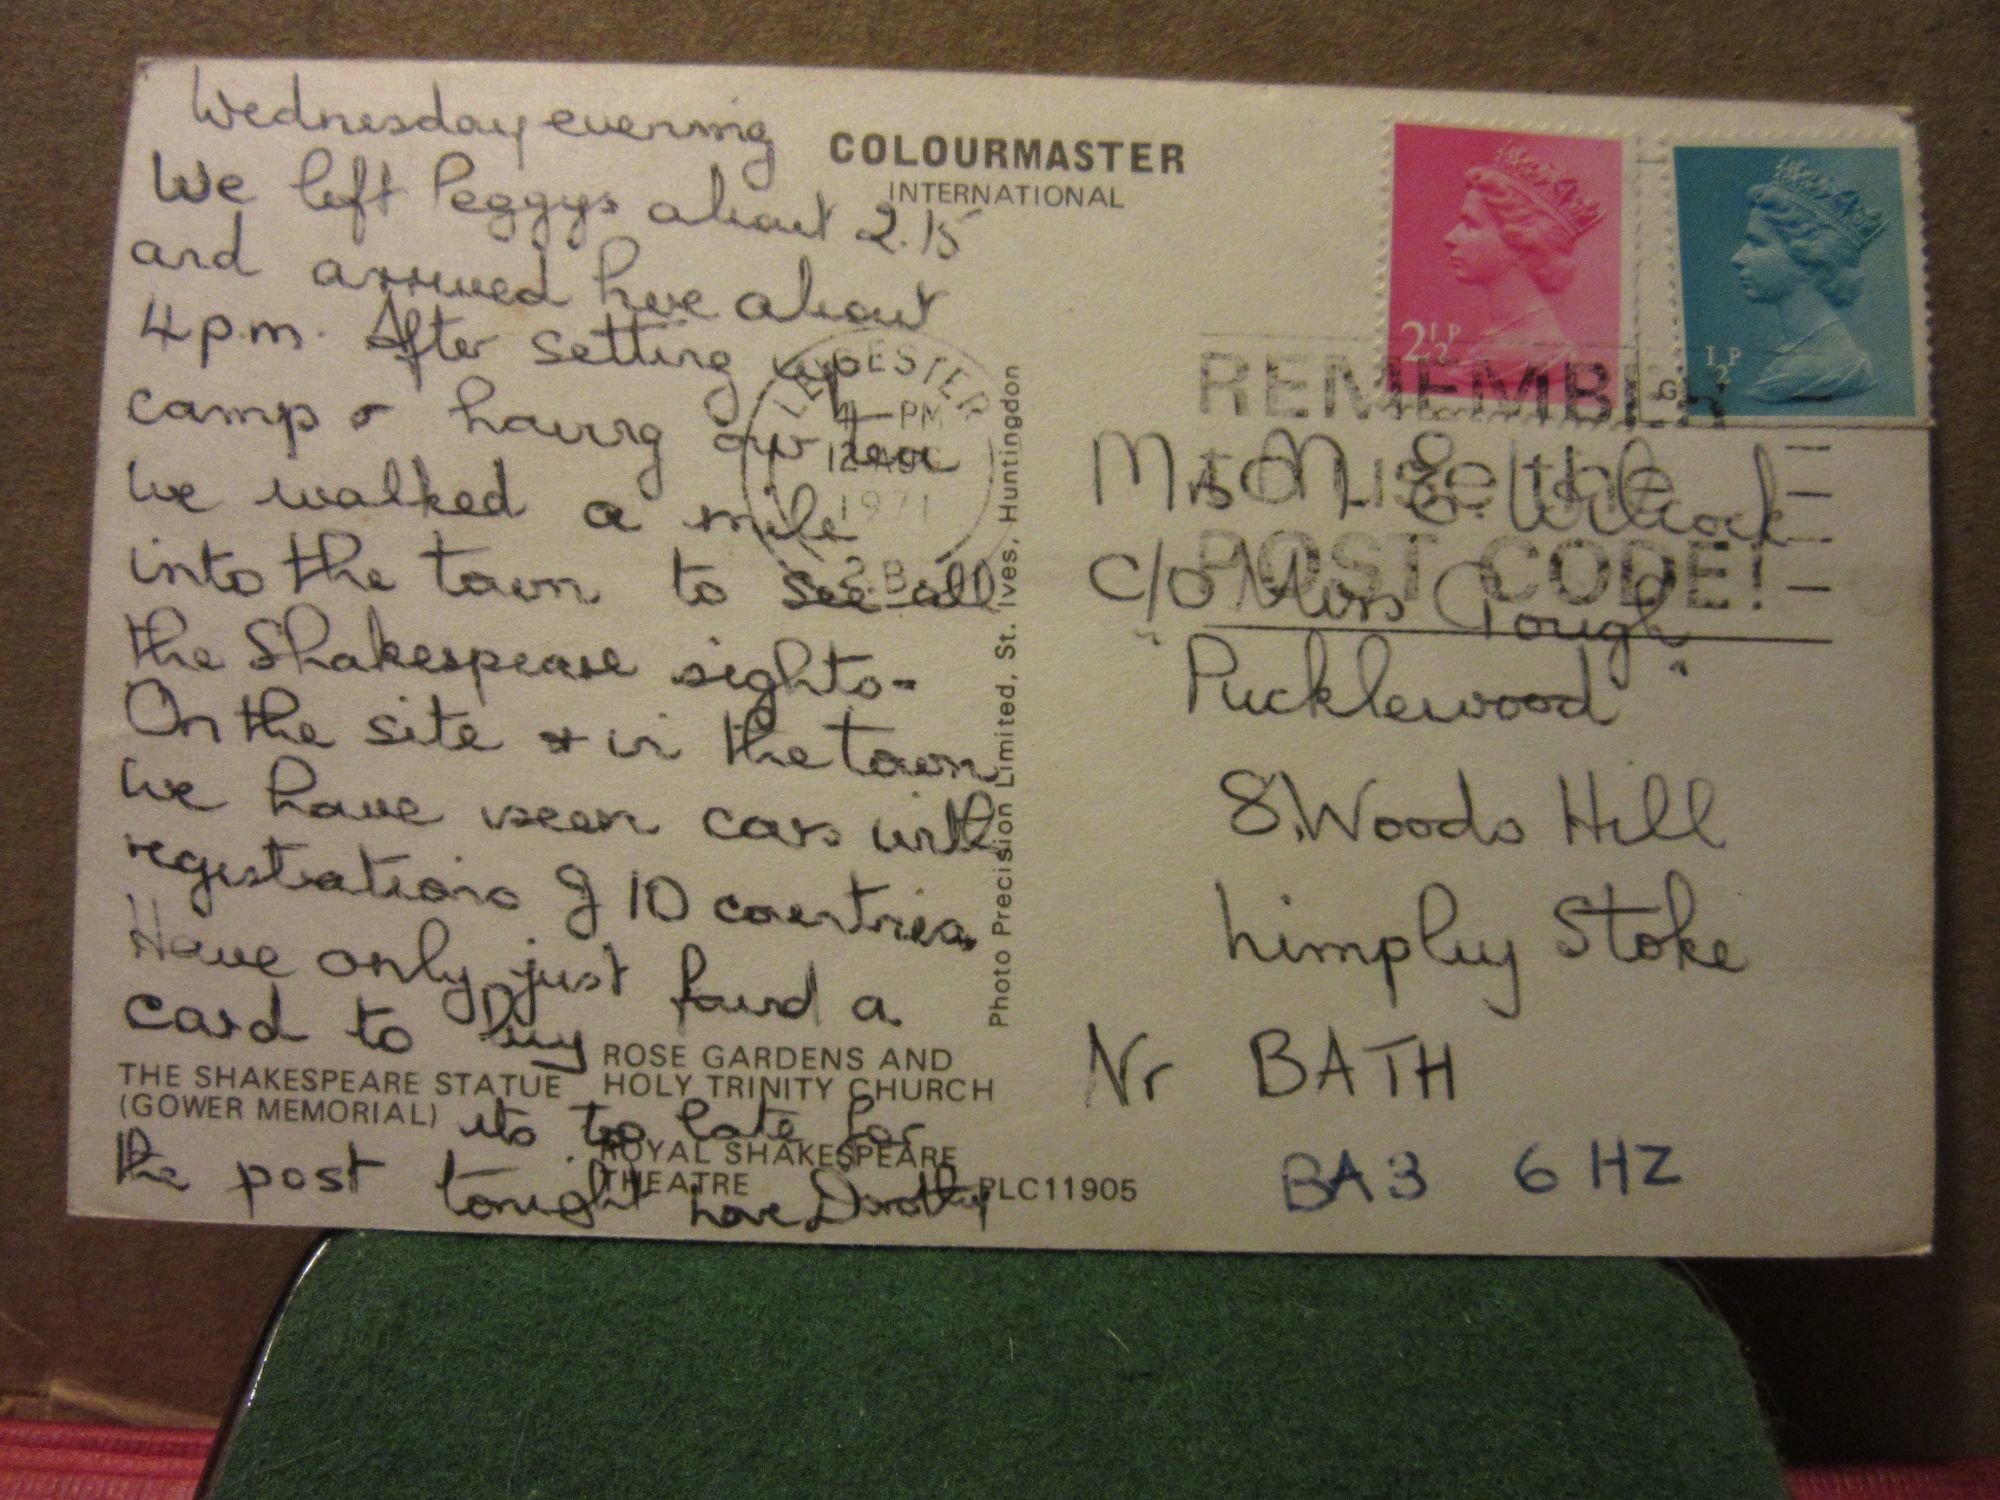 Wednesday evening
We left Peggys about 2.15
and arrived here about
4 p.m. After setting up
camp & having our tea
we walked a mile
into the town to see all
the Shakespeare sights-
On the site & in the town
we have seen cars with
registrations of 10 countries
Have only just found a
card to buy
its too late for
the post tonight love Dorothy
THE SHAKESPEARE STATUE
(GOWER MEMORIAL)
ROSE GARDENS AND
HOLY TRINITY CHURCH
ROYAL SHAKESPEARE
THEATRE
PLC11905
COLOURMASTER
INTERNATIONAL
Photo Precision Limited, St. Ives, Huntingdon
LEICESTER
4 - PM
12 AUG
1971
2½P
½P
REMEMBER
to use the
POST CODE!
Mrs M. E. Wilcock
c/o Miss Gough
"Pucklewood"
8, Woods Hill
Limpley Stoke
Nr BATH
BA3 6HZ